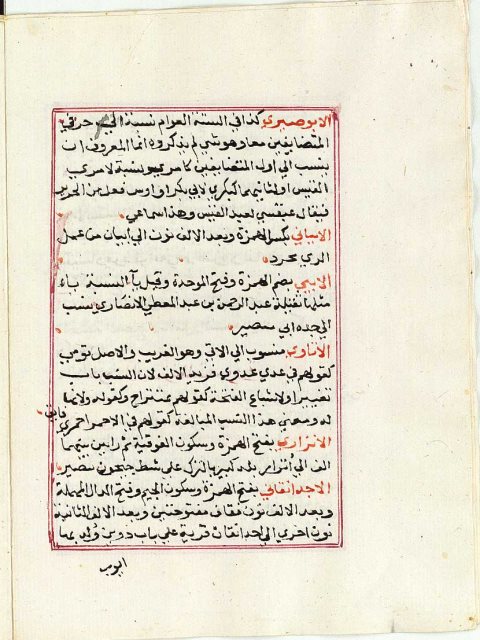 الابوصيري كذا في السنة العوام نسبة الى جزئي
المتضايفين معا وهو شي لم يذكروه انما المعروف ان
ينسب الى اول المتضايفين كامري نسبة لامري
القيس او لثانيهما كبكري لابي بكر او
فيقال عبقسي لعبد القيس وهذا سماعي
الابياني بكسر الهمزة وبعد الالف نون الى ابيان من عمل
الري مجرد
الابيي بضم الهمزة وفتح الموحدة وقبل ياء النسبة ياء
مثلها نسبة عبد الرحمن بن عبد المعطي الانصاري نسب
الى جده ابي
الاتاوي منسوب الى الاتي وهو الغريب والاصل
كقولهم في عدي عدوي فزيد الالف لان النسب باب
تغيير او لاشباع الفتحة كقولهم بمنتزاح وكقوله ولا تها
له ومعنى هذا النسب المبالغة كقولهم في الاحمر احمري
الاتراري بفتح الهمزة وسكون الفوقية ثم رايين بينهما
الف الى أترار بلد كبير بالترك على شط جيحون
الاجدانقاني بفتح الهمزة وسكون الجيم وفتح الدال المهملة
وبعد الالف نون فقاف مفتوحتين وبعد الالف الثانية
نون اخرى الى اجدانقان قرية على باب دوين ولد بها
ايوب